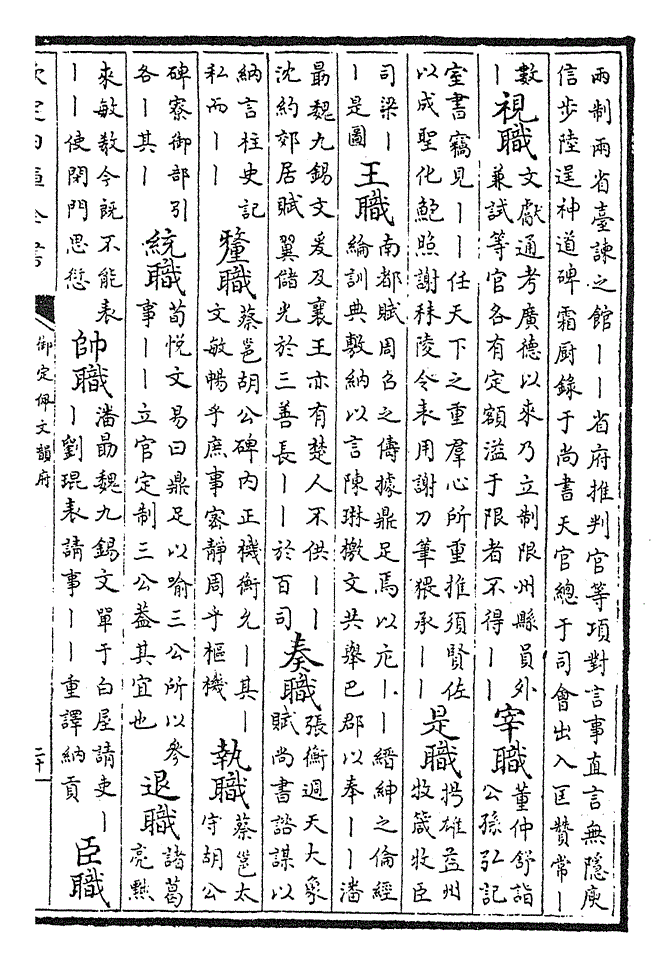 兩制兩省臺諫之館丨丨省府推判官等項對言事直言無隱庾
信步陸逞神道碑霜厨錄于尚書天官總于司會出入匡贊常丨
數丨視職文獻通考廣德以來乃立制限州縣員外兼試等官各有定額溢于限者不得丨丨宰職董仲舒詣公孫弘記
室書竊見丨丨任天下之重羣心所重推須賢佐以成聖化鮑照謝秣陵令表用謝刀筆猥承丨丨是職揚雄益州牧箴牧臣
司梁丨丨是圖王職南都賦周召之儔據鼎足焉以庀丨丨縉紳之倫經綸訓典敷納以言陳琳檄文共舉巴郡以奉丨丨潘
勗魏九錫文爰及襄王亦有楚人不供丨丨沈約郊居賦翼儲光於三善長丨丨於百司奏職張衡週天大象賦尚書諮謀以
納言柱史記私而丨丨釐職蔡邕胡公碑内正機衡允丨其丨文敏暢乎庶事密靜周乎樞機執職蔡邕太守胡公
碑寮御部引各丨其丨統職荀悅文易曰鼎足以喻三公所以參事丨丨立官定制三公葢其宜也退職諸葛亮黜
來敏教今旣不能表丨丨使閉門思愆帥職潘勗魏九錫文單于白屋請吏丨丨劉琨表請事丨丨重譯納貢臣職
御定佩文韻府